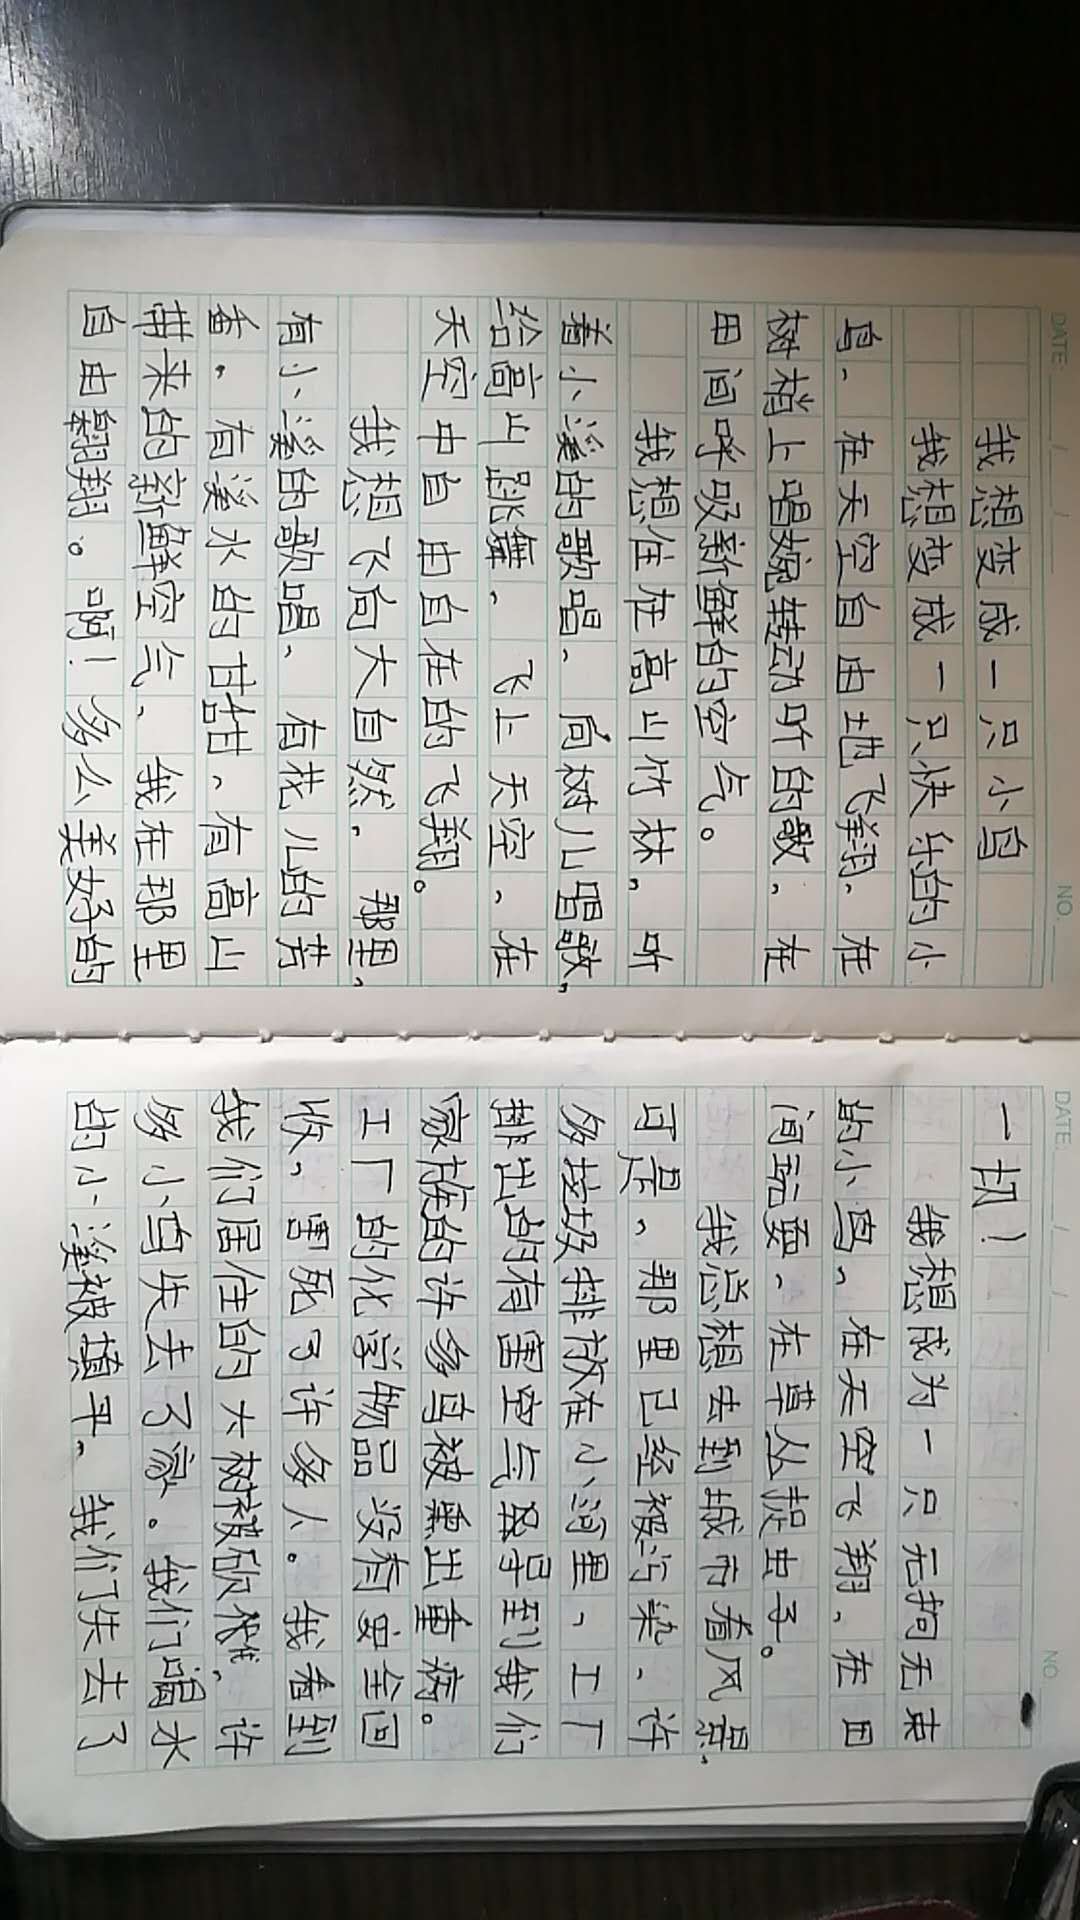 DATE: / / NO.
我想变成一只小鸟
我想变成一只快乐的小
鸟，在天空自由地飞翔，在
树梢上唱婉转动听的歌，在
田间呼吸新鲜的空气。
我想住在高山竹林，听
着小溪的歌唱，向树儿唱歌，
给高山跳舞，飞上天空，在
天空中自由自在的飞翔。
我想飞向大自然，那里，
有小溪的歌唱，有花儿的芳
香，有溪水的甘甜，有高山
带来的新鲜空气，我在那里
自由翱翔。啊！多么美好的
DATE: / / NO
一切！
我想成为一只无拘无束
的小鸟，在天空飞翔，在田
间玩耍，在草丛捉虫子。
我总想去到城市看风景，
可是，那里已经被污染，许
多垃圾排放在小河里，工厂
排出的有害空气导到我们
家族的许多鸟被熏出重病。
工厂的化学物品没有安全回
收，害死了许多人。我看到
我们居住的大树被砍伐，许
多小鸟失去了家。我们喝水
的小溪被填平，我们失去了